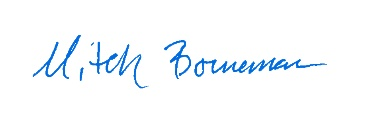 Mitch Borneman